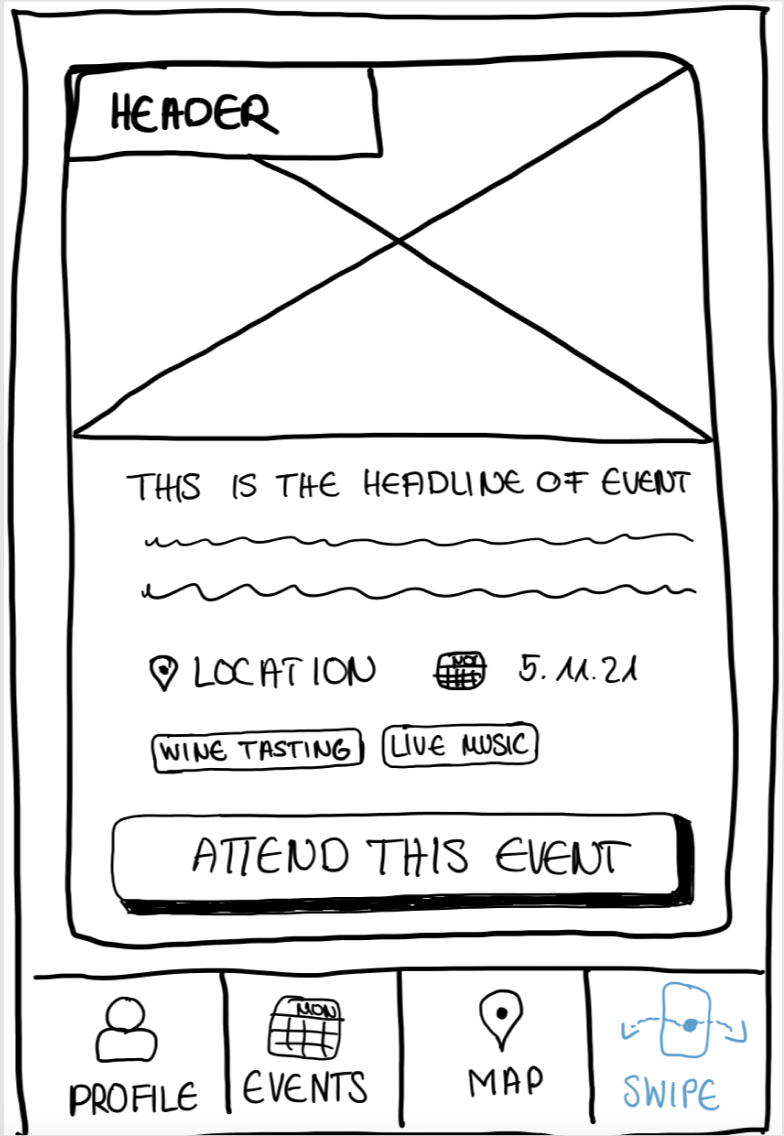 HEADER
THIS IS THE HEADLINE OF EVENT
LOCATION 5.11.21
WINE TASTING LIVE MUSIC
ATTEND THIS EVENT
MON
PROFILE EVENTS MAP SWIPE